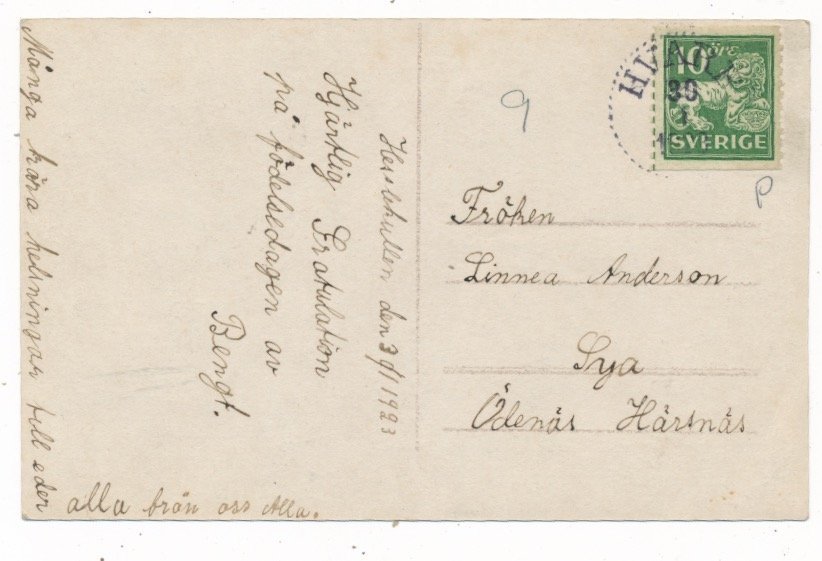 Hesslekullen den 3/1 1923
Hjärtlig Gratulation
på födelsedagen av
Bengt.
Många kära helsningar till eder
alla från oss Alla.
9
10 öre
SVERIGE
30
1
P
Fröken
Linnea Anderson
Sya
Ödenäs Härsnäs